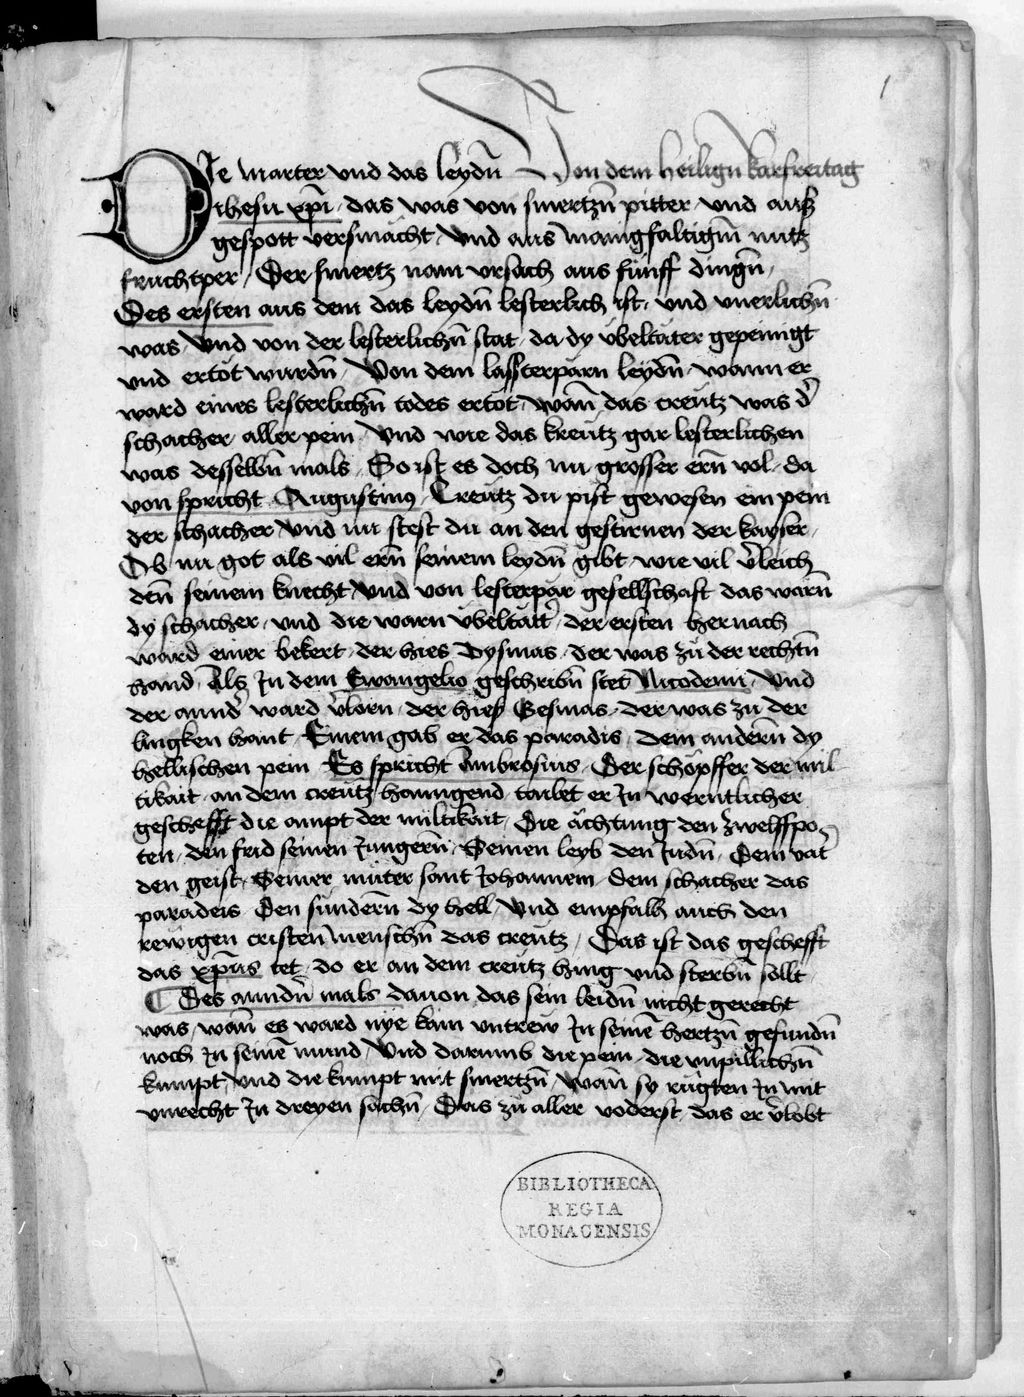 1
Die Marter vnd das leydn̄ Von dem heilign̄ karfreitag
ihesu xp̄i · das was von smertzn̄ pitter vnd aus
gespott versmächt · vnd aus manigfaltigm̄ nutz
fruchtper · Der smertz nam vrsach aus fünff dingn̄
Des ersten aus dem das leydn̄ lesterlich ist · vnd vnerlichn̄
was · vnd von der lesterlichn̄ stat · da dy übeltäter gepeinigt
vnd ertöt wurdn̄ · Von dem lassterparn leydn̄ · wann er
ward eines lesterlichn̄ todes ertöt · wan̄ das creütz was d'
schacher aller pein · vnd wie das kreütz gar lesterlichen
was desselbn̄ mals · So ist es doch nu grosser ern̄ vol · da
von spricht Augustinus · Creütz du pist gewesen ein pein
der schacher · vnd nu stest du an den gestirnen der kayser ·
Ob nu got als vil ern̄ seinem leydn̄ gibt · wie vil v'leich
den̄ seinem knecht · vnd von lesterpar gesellschaft das warn̄
dy schacher · vnd die warn übeltätt' · der ersten hernach
ward einer bekert · der hies Dysmas · der was zu der rechtn̄
hand · Als Jn dem Ewangelio geschribn̄ stet Nicodemi · vnd
der annd' ward v'lorn · der hies Gesmas · der was zu der
lingken hant · Einem gab er das paradis · dem andern̄ dy
hellischen pein · Es spricht Ambrosius · Der schöpffer der mil
tikait · an dem creütz hanngend · tailet er Jn werntlicher
geschefft die ampt der miltikait · Die ächtung den zwelffpo
ten · den frid seinen Jungern̄ · Seinen leyb den Judn̄ · Dem vat'
den geist · Seiner muter sant Johannem · dem schacher das
paradeis · Den sündern̄ dy hell · vnd empfalh auch den
rewigen cristen menschn̄ das creütz · Das ist das geschefft
das xp̄us tet · do er an dem creütz hing vnd sterbn̄ sollt
Des anndn̄ mals dauon das sein leidn̄ nicht gerecht
was · wan̄ es ward nye kain vntrew Jn seinē hertzn̄ gefundn̄
noch Jn seinē mund · vnd darumb die pein · die vnpillichn̄
kumpt · vnd die kumpt mit smertzn̄ · wan̄ sy rügten Jn mit
vnrecht Jn dreyen sachn̄ · Das zu aller voderst · das er v'lobt
BIBLIOTHECA
REGIA
MONACENSIS